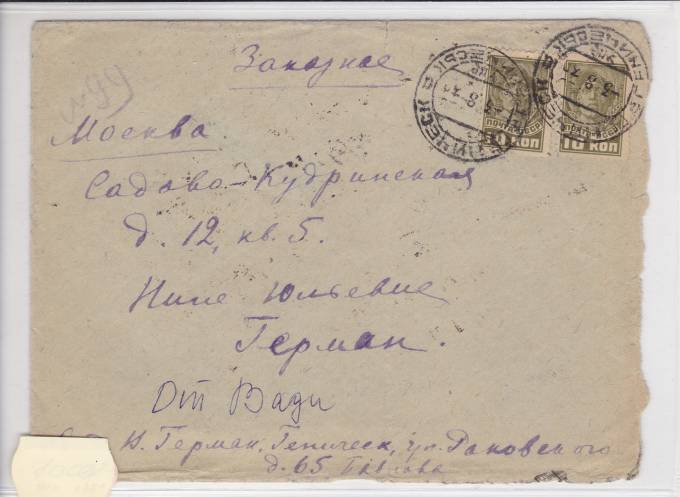 Заказное
Москва
Садово-Кудринская
д. 12, кв. 5.
Нине Юльевне
Герман.
От Вади
Н. Герман, Геническ, ул. Раковского
д. 65
ПОЧТА СССР
10 КОП
ПОЧТА СССР
10 КОП